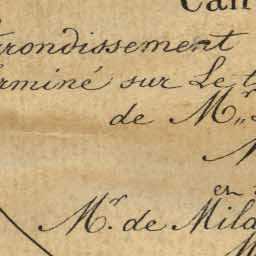 Can
rrondissement
erminé sur Le t
de Mr.
en
Mr. de Mila